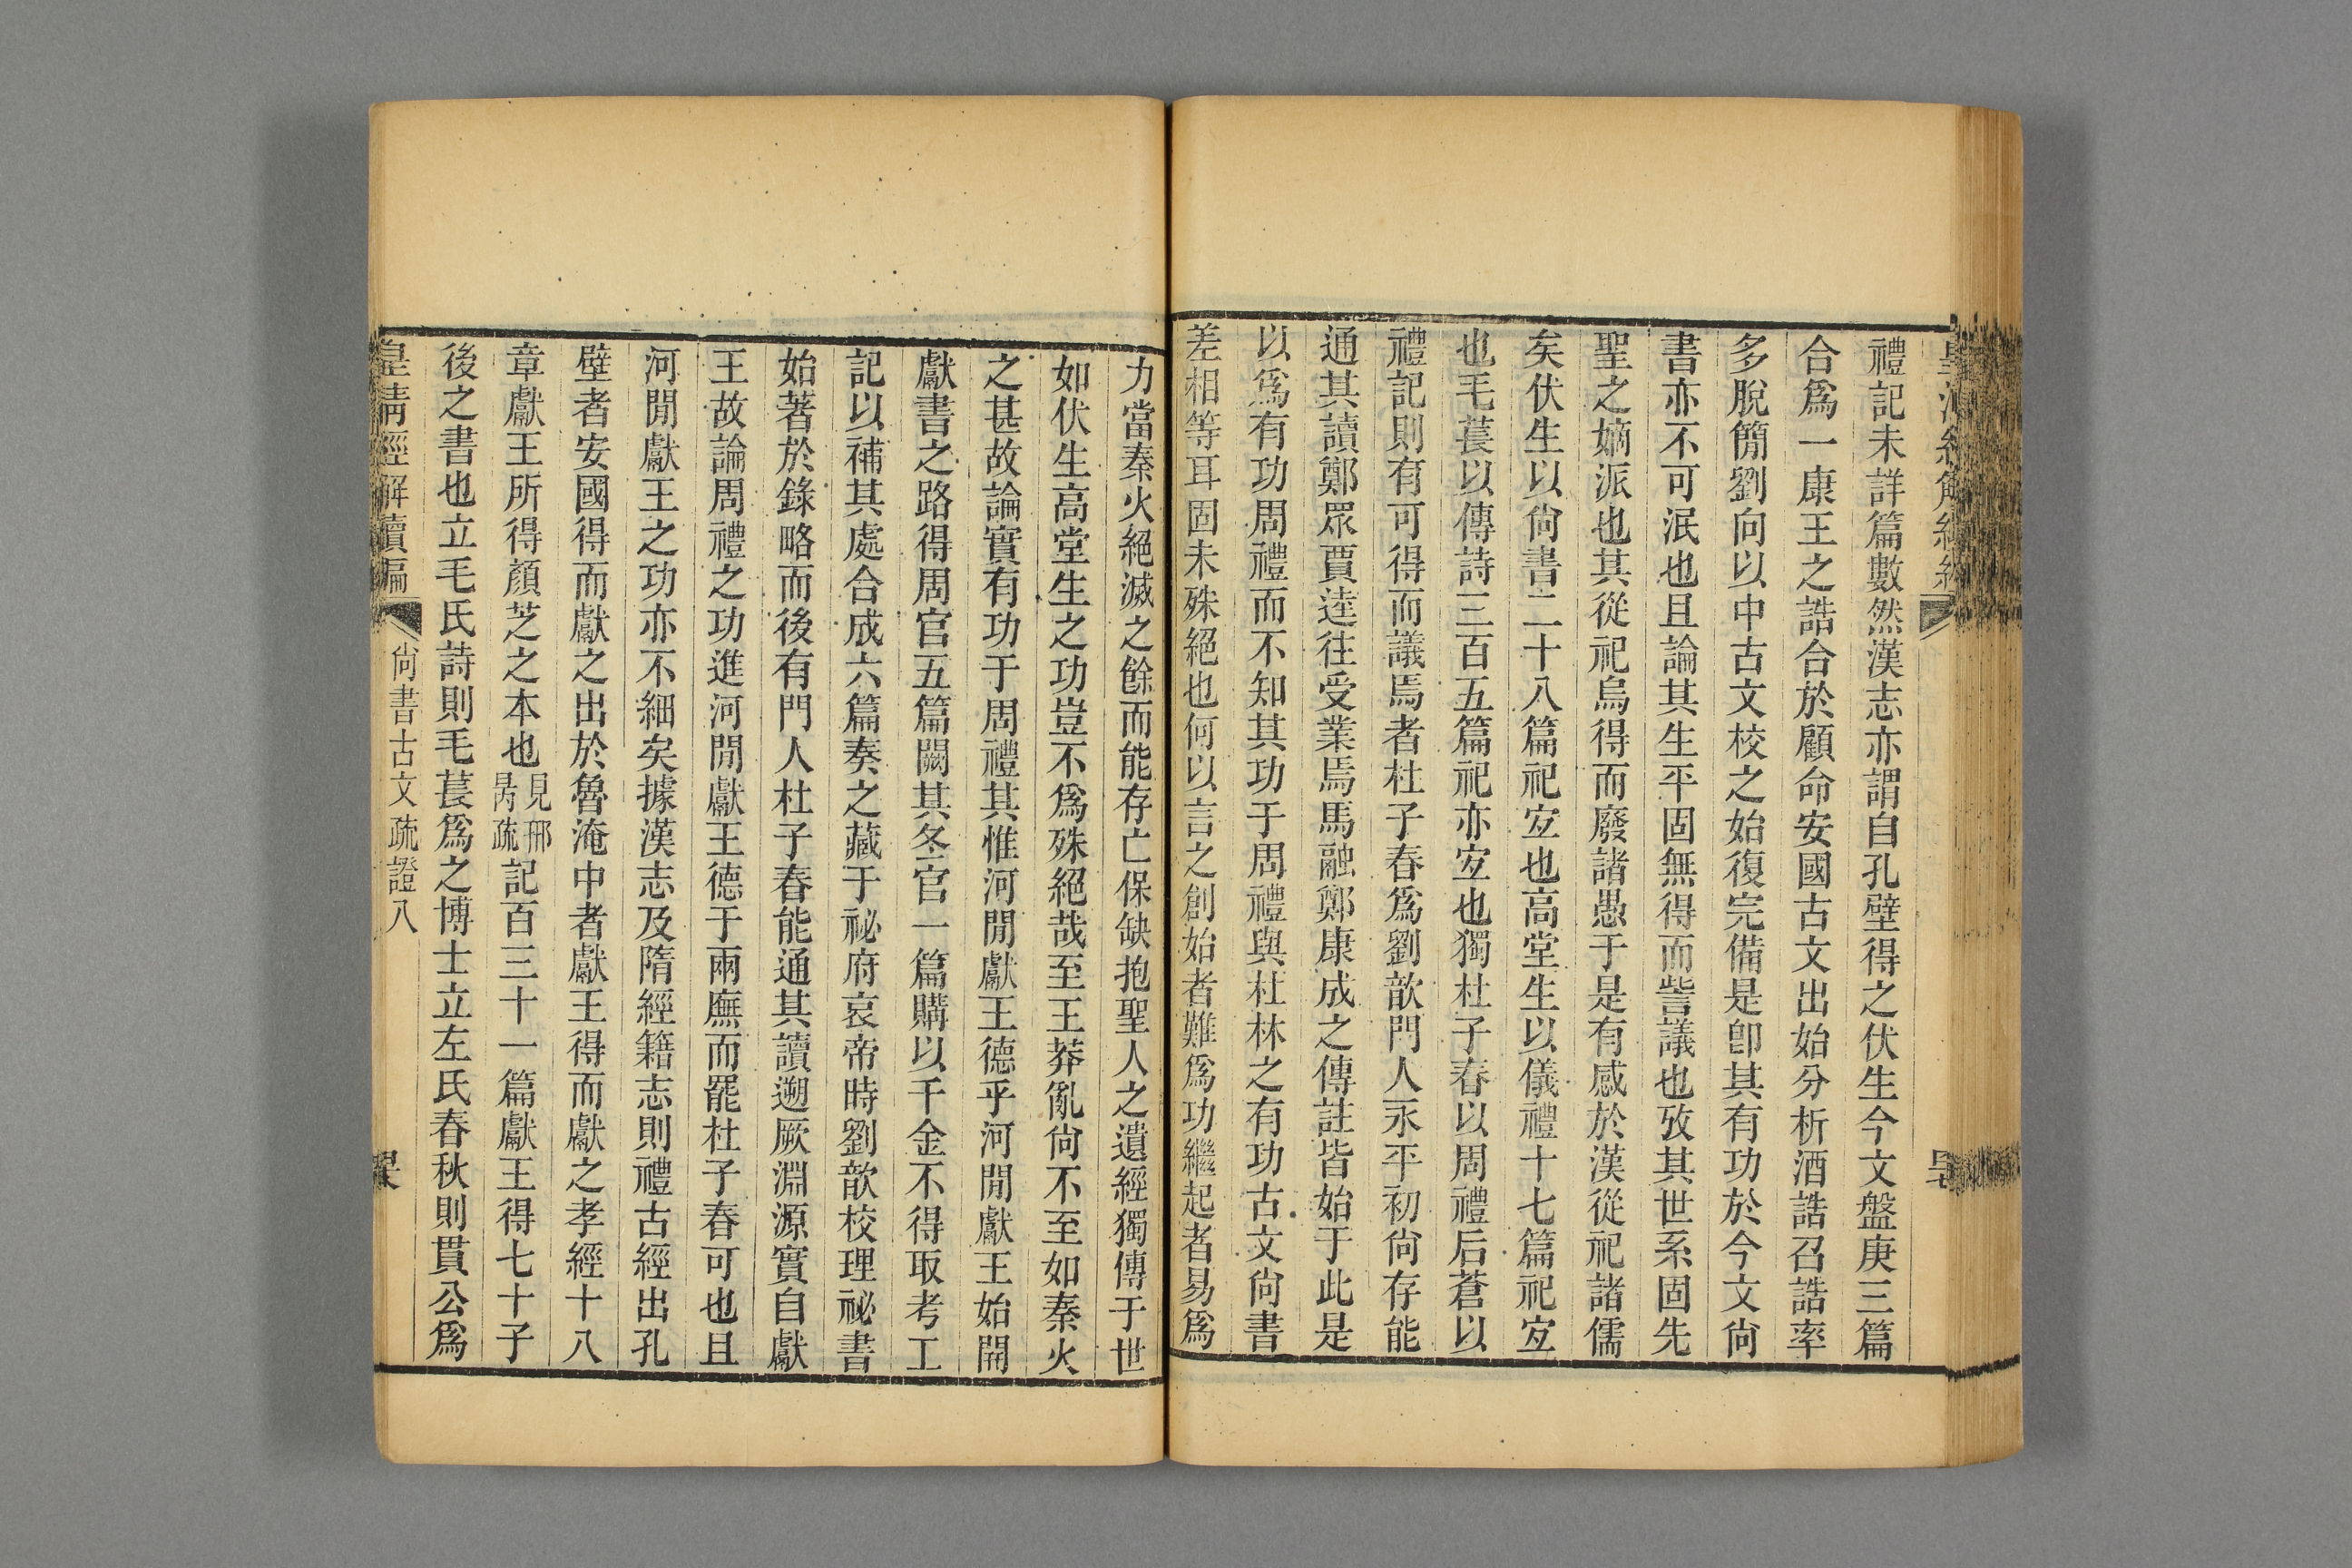 禮記未詳篇數然漢志亦謂自孔壁得之伏生今文盤庚三篇
合爲一康王之誥合於顧命安國古文出始分析酒誥召誥率
多脫簡劉向以中古文校之始復完備是卽其有功於今文尙
書亦不可泯也且論其生平固無得而訾議也攷其世系固先
聖之嫡派也其從祀烏得而廢諸愚于是有感於漢從祀諸儒
矣伏生以尙書二十八篇祀宐也高堂生以儀禮十七篇祀宐
也毛萇以傳詩三百五篇祀亦宐也獨杜子春以周禮后蒼以
禮記則有可得而議焉者杜子春爲劉歆門人永平初尙存能
通其讀鄭眾賈逵往受業焉馬融鄭康成之傳註皆始于此是
以爲有功周禮而不知其功于周禮與杜林之有功古文尙書
差相等耳固未殊絕也何以言之創始者難爲功繼起者易爲
力當秦火絕滅之餘而能存亡保缺抱聖人之遺經獨傳于世
如伏生高堂生之功豈不爲殊絕哉至王莽亂尙不至如秦火
之甚故論實有功于周禮其惟河閒獻王德乎河閒獻王始開
獻書之路得周官五篇闕其冬官一篇購以千金不得取考工
記以補其處合成六篇奏之藏于祕府哀帝時劉歆校理祕書
始著於錄略而後有門人杜子春能通其讀遡厥淵源實自獻
王故論周禮之功進河閒獻王德于兩廡而罷杜子春可也且
河閒獻王之功亦不細矣據漢志及隋經籍志則禮古經出孔
壁者安國得而獻之出於魯淹中者獻王得而獻之孝經十八
章獻王所得顏芝之本也見邢昺疏記百三十一篇獻王得七十子
後之書也立毛氏詩則毛萇爲之博士立左氏春秋則貫公爲
皇淸經解續編
尙書古文疏證八